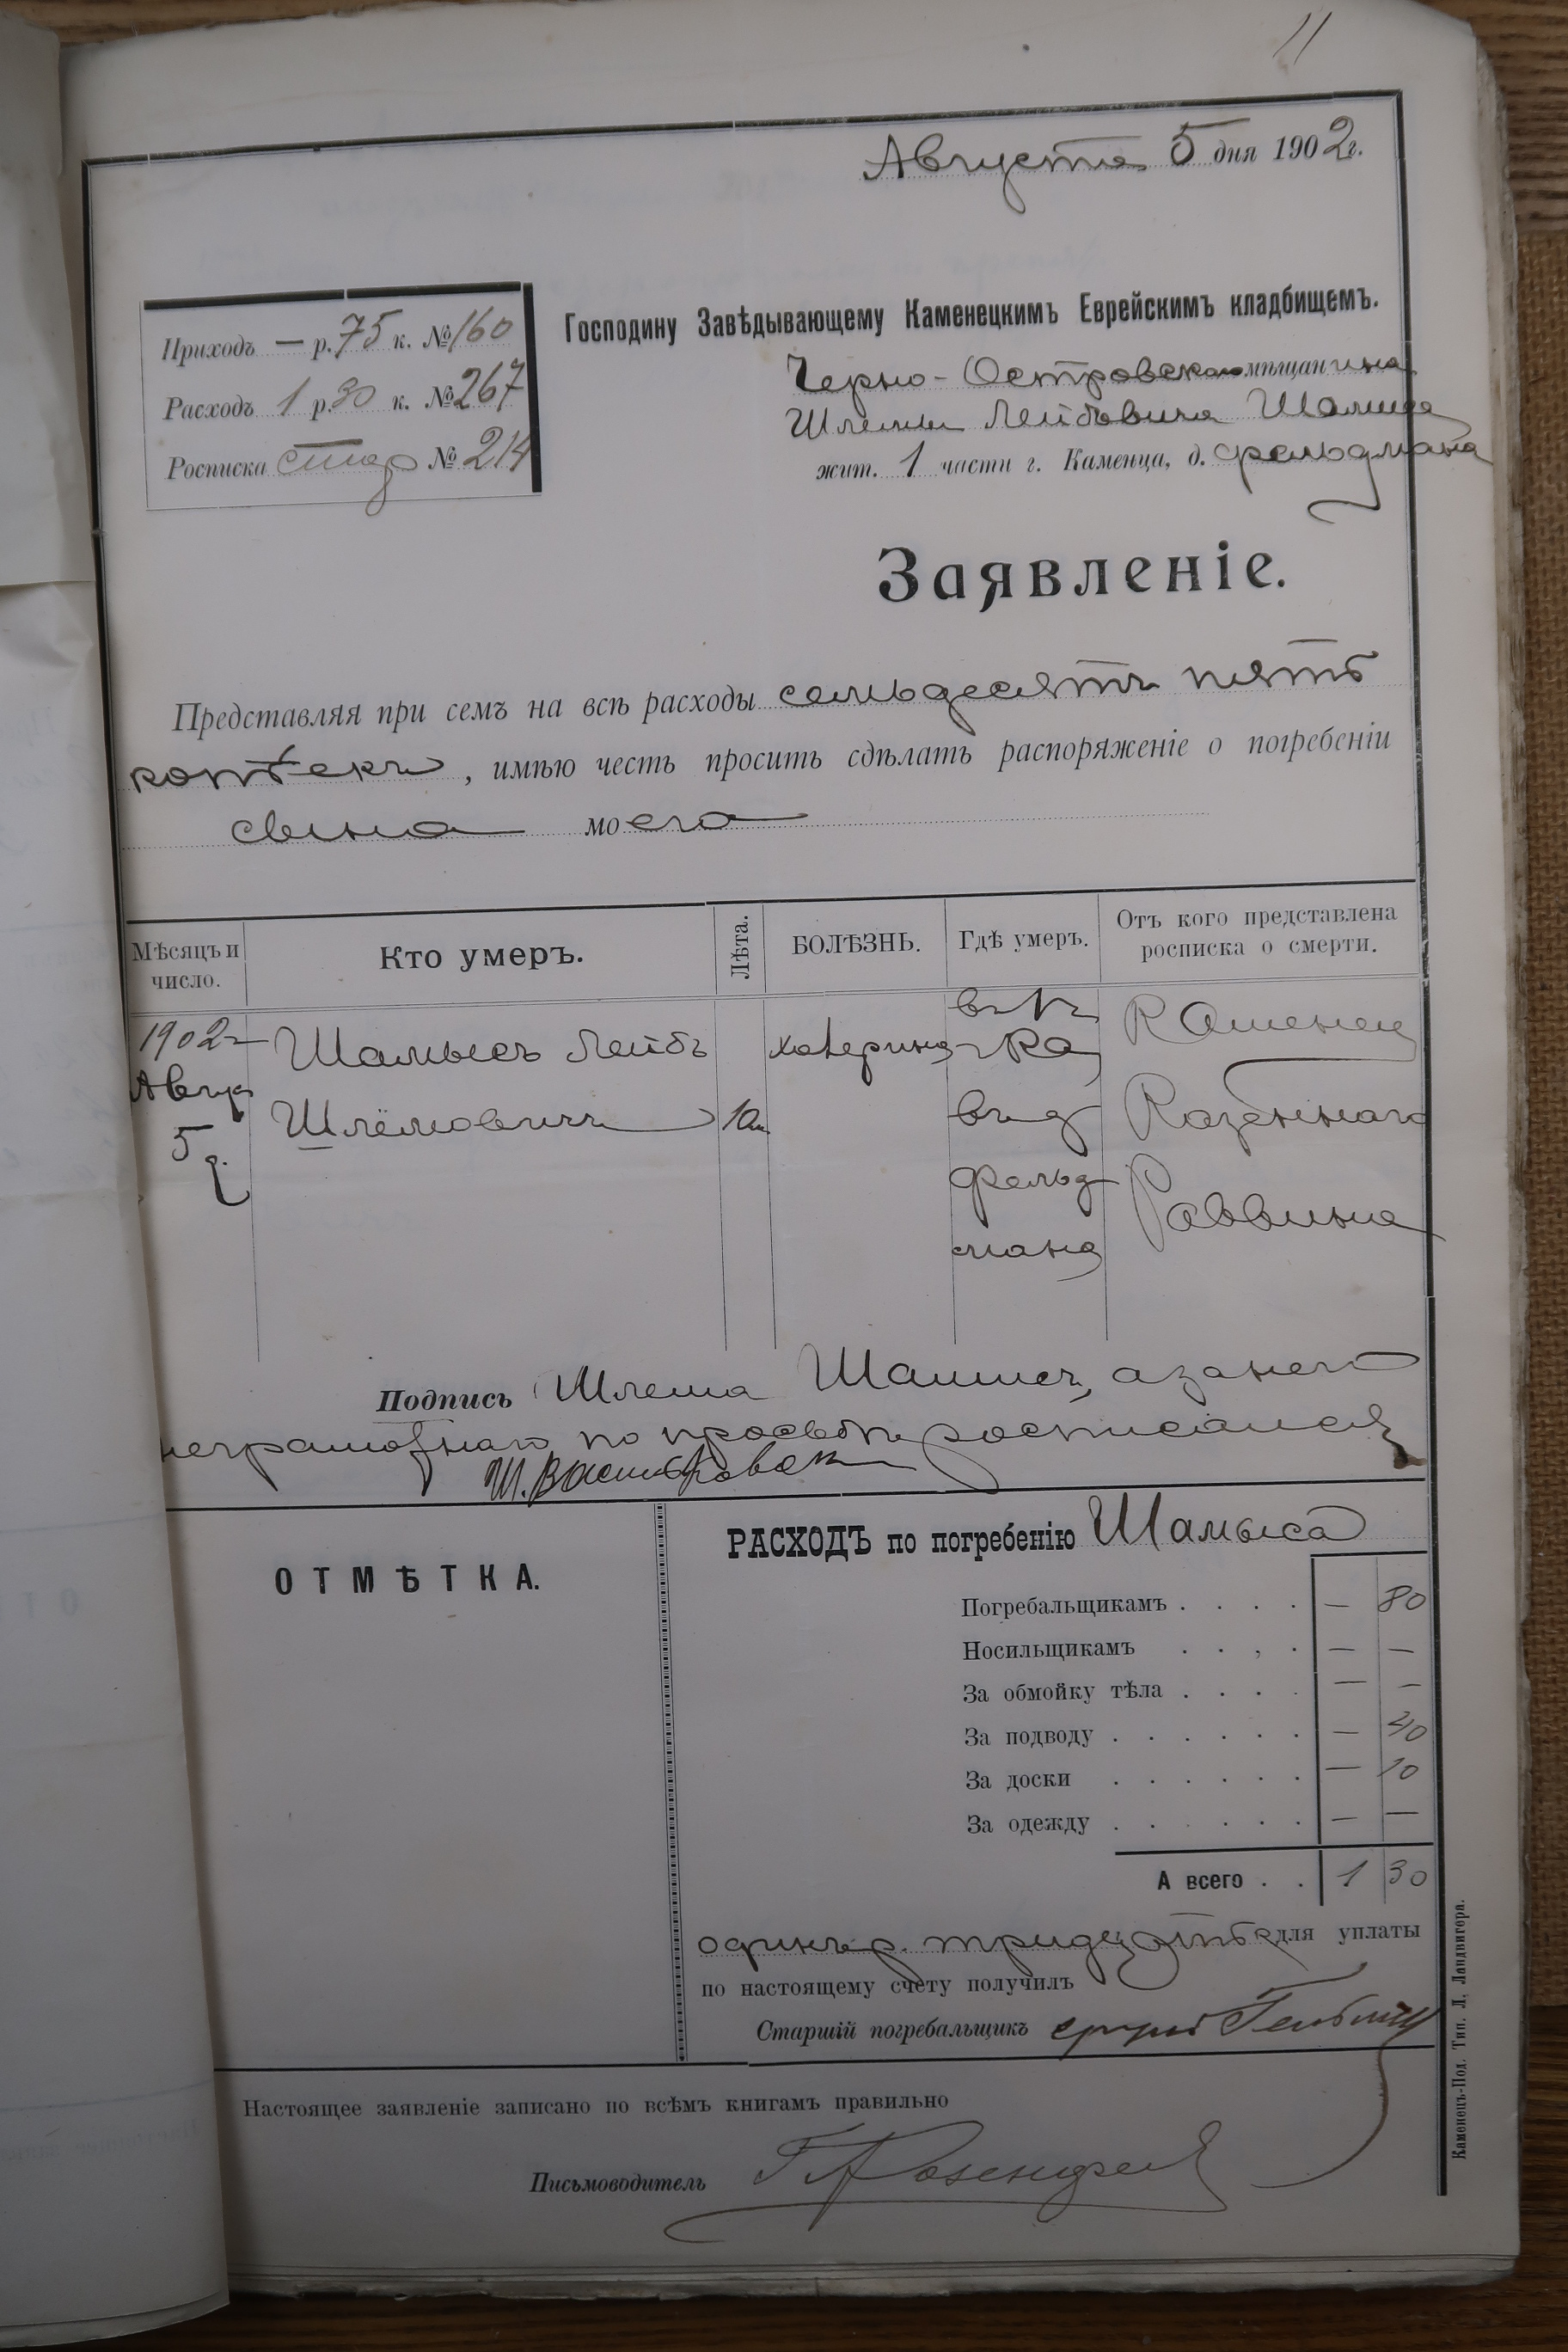 11
Августа 5 дня 1902 г.
Приходъ — р. 75 к. № 160
Расходъ 1 р. 30 к. № 267
Росписка стар № 214
Господину Завѣдывающему Каменецкимъ Еврейскимъ кладбищемъ.
Черно-Островскаго мѣщанина
Шлемы Лейбовича Шамиса
жит. 1 части г. Каменца, д. Фельдмана
Заявленіе.
Представляя при семъ на всѣ расходы семьдесятъ пять
копѣекъ, имѣю честь просить сдѣлать распоряженіе о погребеніи
сына моего
Мѣсяцъ и число.
Кто умеръ.
Лѣта.
БОЛѢЗНЬ.
Гдѣ умеръ.
Отъ кого представлена росписка о смерти.
1902 г.
Авгус
5 д.
Шамысъ Лейбъ
Шлёмовичъ
10м
холерина
въ д
Фельд
мана
Каменец
Казеннаго
Раввина
Подпись Шлема Шамисъ, а за него
неграмотнаго по просьбѣ росписался
ОТМѢТКА.
РАСХОДЪ по погребенію Шамыса
Погребальщикамъ . . . . — 80
Носильщикамъ . . , . — —
За обмойку тѣла . . . . — —
За подводу . . . . . . — 40
За доски . . . . . . — 10
За одежду . . . . . . — —
А всего . . 1 30
одинъ р. тридцать к для уплаты
по настоящему счету получилъ
Старшій погребальщикъ
Настоящее заявленіе записано по всѣмъ книгамъ правильно
Письмоводитель
Каменецъ-Под. Тип. Л. Ландвигера.